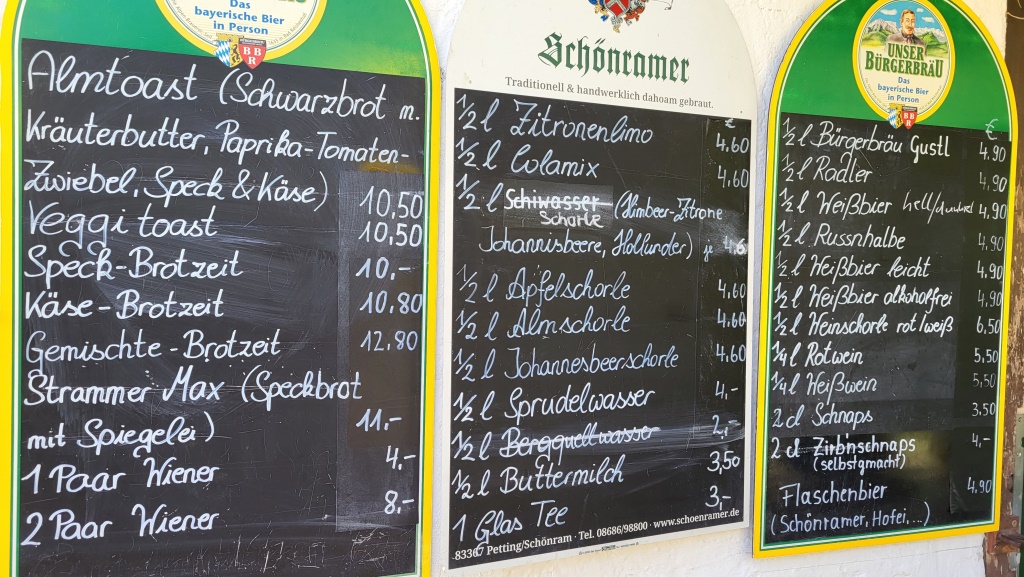 Das
bayerische Bier
in Person
BBR
Almtoast (Schwarzbrot m.
Kräuterbutter, Paprika-Tomaten-
Zwiebel, Speck & Käse) 10,50
Veggitoast 10,50
Speck-Brotzeit 10.-
Käse-Brotzeit 10.80
Gemischte-Brotzeit 12.80
Strammer Max (Speckbrot
mit Spiegelei) 11,-
1 Paar Wiener 4,-
2 Paar Wiener 8,-
Schönramer
Traditionell & handwerklich dahoam gebraut.
€
1/2 l Zitronenlimo 4.60
1/2 l Colamix 4,60
1/2 l Schiwasser (Himbeer-Zitrone
Schorle
Johannisbeere, Hollunder) je 4.6
1/2 l Apfelschorle 4.60
1/2 l Almschorle 4.60
1/2 l Johannesbeerschorle 4,60
1/2 l Sprudelwasser 4,-
1/2 l Bergquellwasser 2,-
1/2 l Buttermilch 3,50
1 Glas Tee 3,-
83367 Petting/Schönram · Tel. 08686/98800 · www.schoenramer.de
UNSER
BÜRGERBRÄU
Das
bayerische Bier
in Person
€
1/2 l Bürgerbräu Gustl 4.90
1/2 l Radler 4,90
1/2 l Weißbier hell/dunkel 4,90
1/2 l Russnhalbe 4.90
1/2 l Weißbier leicht 4.90
1/2 l Weißbier alkoholfrei 4,90
1/2 l Weinschorle rot/weiß 6,50
1/4 l Rotwein 5,50
1/4 l Weißwein 5,50
2 cl Schnaps 3,50
2 cl Zirbinschnaps 4,-
(selbstgmacht)
Flaschenbier 4,90
(Schönramer, Hofei,...)